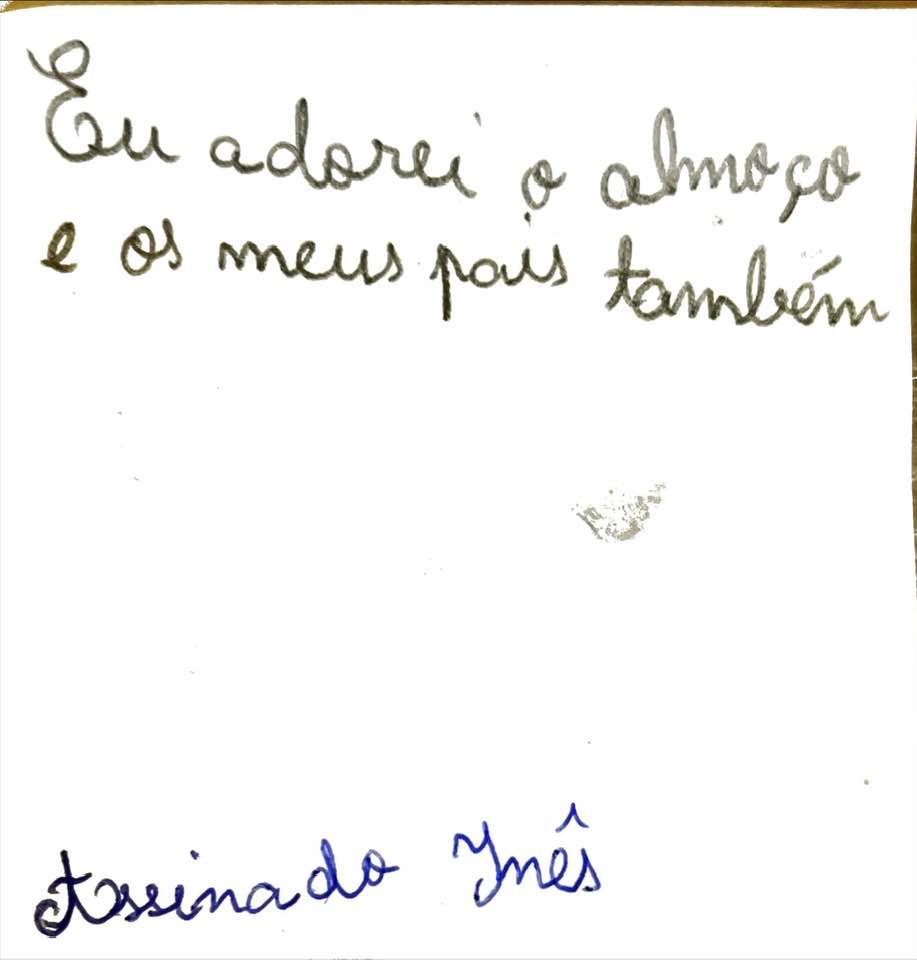 Eu adorei o almoço
e os meus pais também
Assinado Inês